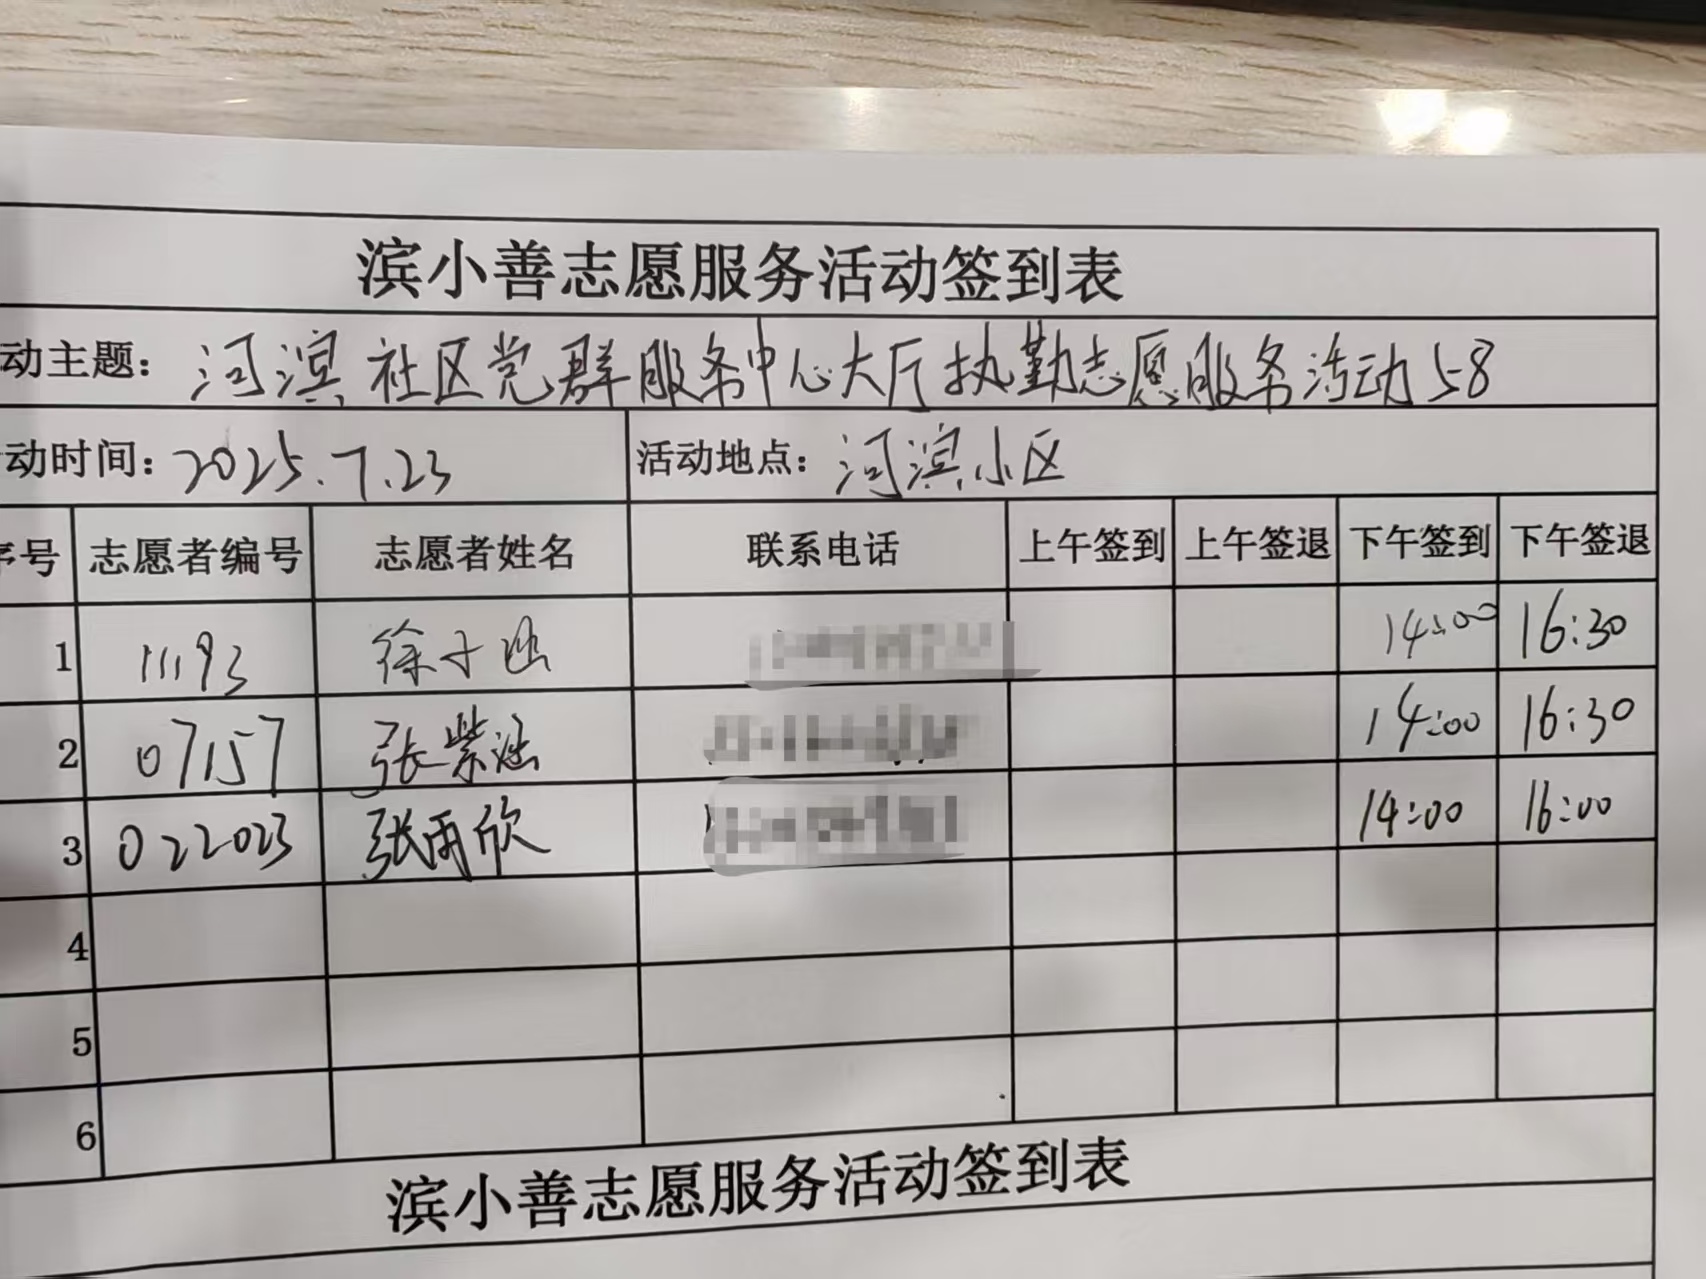 滨小善志愿服务活动签到表
动主题：河滨社区党群服务中心大厅执勤志愿服务活动58
动时间：2025.7.23 活动地点：河滨小区
序号 志愿者编号 志愿者姓名 联系电话 上午签到 上午签退 下午签到 下午签退
1 11193 徐子涵 14:00 16:30
2 07157 张紫涵 14:00 16:30
3 022023 张雨欣 14:00 16:00
4
5
6
滨小善志愿服务活动签到表